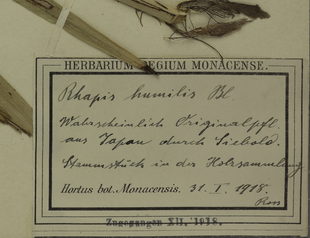 HERBARIUM REGIUM MONACENSE.
Rhapis humilis Bl
Wahrscheinlich Originalpfl.
aus Japan durch Siebold.
Stammstück in der Holzsammlung
Hortus bot. Monacensis. 31. I. 1918.
Ross
Zugegangen XII. 1918.